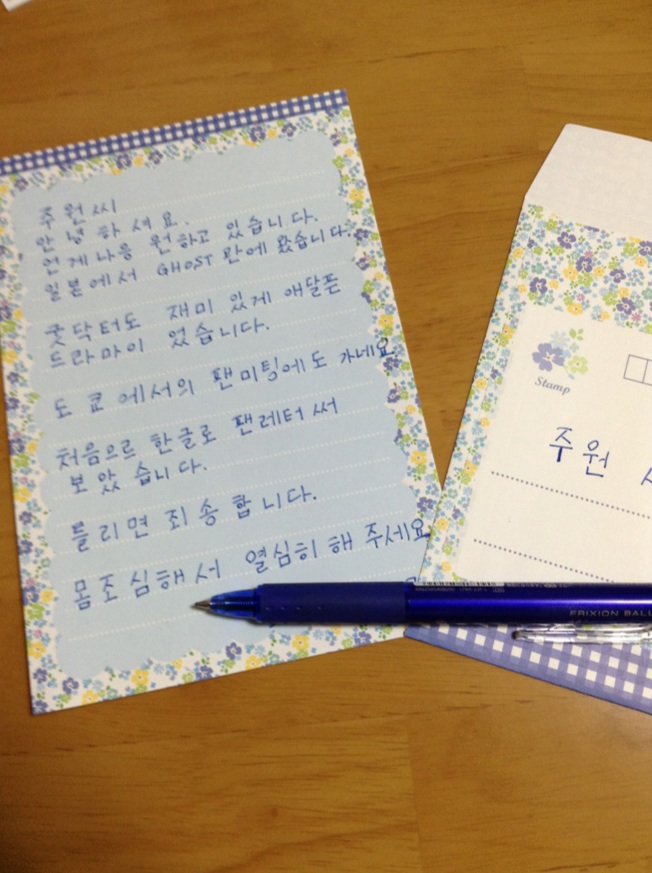 주원씨
안녕하셔요.
언게나응 원하고 있습니다.
일본에서 GHOST 관에 왔습니다.
굿닥터도 재미 있게 애달픈
드라마이 었습니다.
도쿄에서의 팬미팅에도 가네요.
처음으르 한글로 팬레터 써
보았습니다.
틀리면 죄송합니다.
몸조심해서 열심히 해 주세요
Stamp
주원
FRIXION BALL